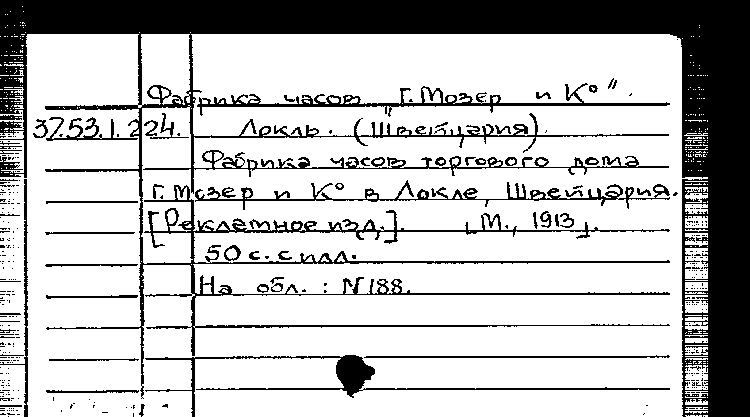 Фабрика часов "Г. Мозер и К°".
37.53.1.224. Локль. (Швейцария).
Фабрика часов торгового дома
Г. Мозер и К° в Локле, Швейцария.
[Рекламное изд.]. [М., 1913].
50 с. с илл.
На обл.: N188.